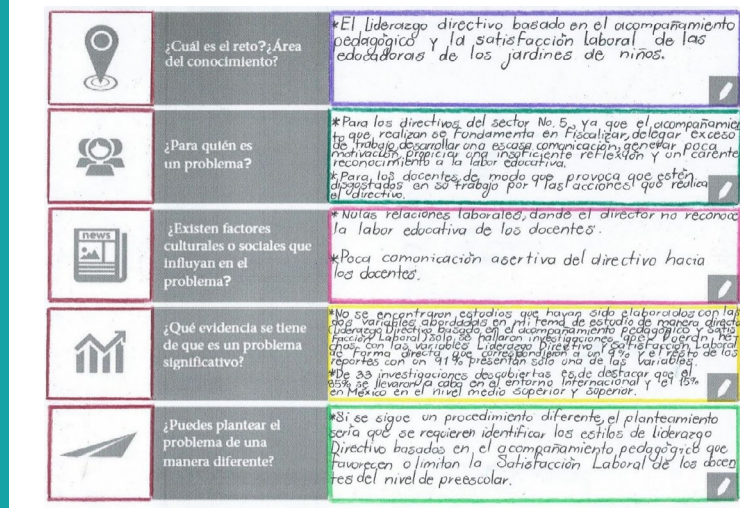 ¿Cuál es el reto?¿Área
del conocimiento?
*El Liderazgo directivo basado en el acompañamiento
pedagógico y la satisfacción laboral de las
educadoras de los jardines de niños.
¿Para quién es
un problema?
*Para los directivos del sector No. 5, ya que el acompañamien
to que realizan se fundamenta en fiscalizar, delegar exceso
de trabajo, desarrollar una escasa comunicación, generar poca
motivación, propiciar una insuficiente reflexión y un carente
reconocimiento a la labor educativa.
*Para los docentes, de modo que provoca que estén
disgustados en su trabajo por las acciones que realiza
el directivo.
news
¿Existen factores
culturales o sociales que
influyan en el
problema?
* Nulas relaciones laborales, donde el director no reconoce
la labor educativa de los docentes.
*Poca comunicación asertiva del directivo hacia
los docentes.
¿Qué evidencia se tiene
de que es un problema
significativo?
*No se encontraron estudios que hayan sido elaborados con las
dos variables abordadas en mi tema de estudio de manera directa
Liderazgo Directivo basado en el acompañamiento pedagógico y Satis
facción Laboral, sólo se hallaron investigaciones que fueron he
chas con las variables Liderazgo Directivo y Satisfacción Laboral
de forma directa que correspondieron a un 9% y el resto de los
reportes con un 91% presentan sólo una de las variables.
*De 33 investigaciones descubiertas es de destacar que el
85% se llevaron a cabo en el entorno Internacional y el 15%
en México en el nivel medio superior y superior.
¿Puedes plantear el
problema de una
manera diferente?
*Si se sigue un procedimiento diferente, el planteamiento
sería que se requieren identificar los estilos de liderazgo
Directivo basados en el acompañamiento pedagógico que
favorecen o limitan la Satisfacción Laboral de los docen
tes del nivel de preescolar.